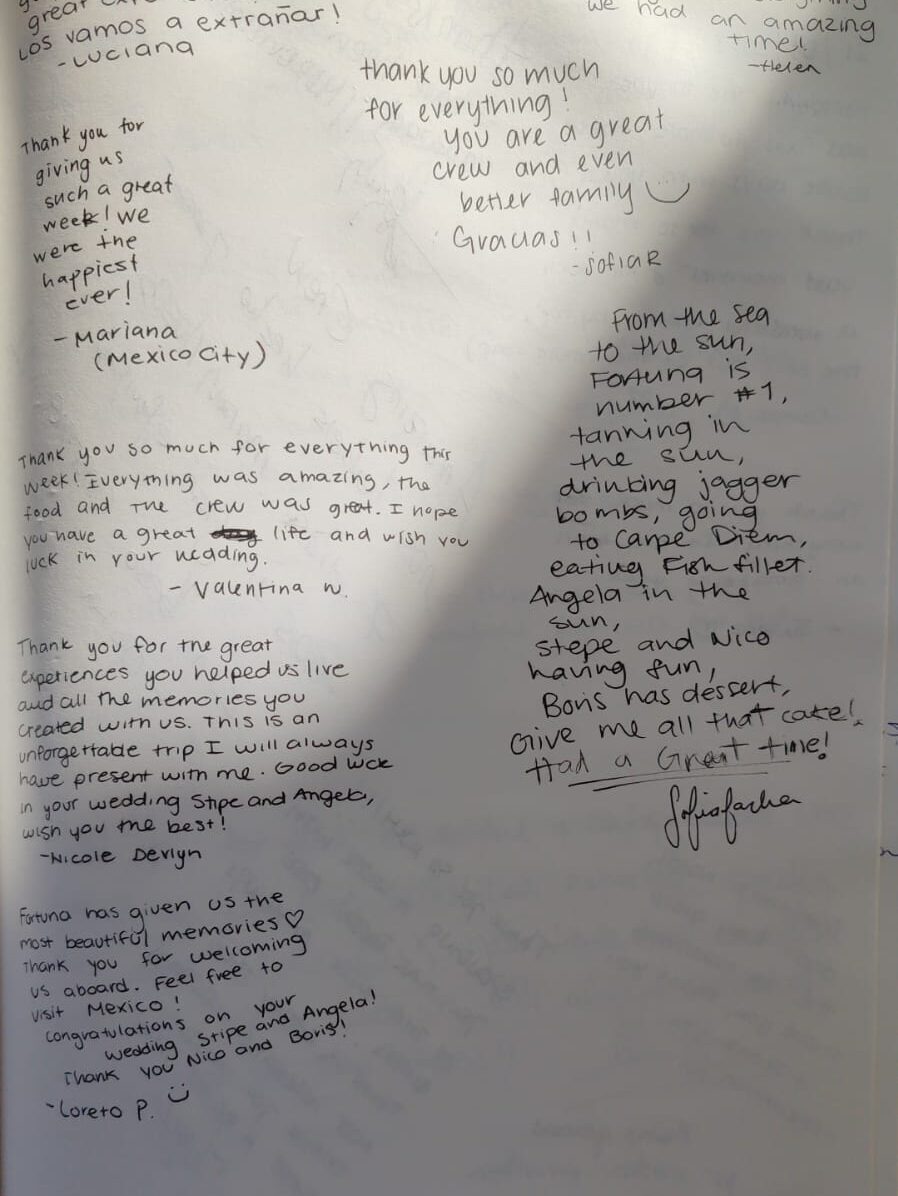 great
Los vamos a extrañar!
-Luciana
we had an amazing
time!
-Helen
thank you so much
for everything!
you are a great
crew and even
better family
Gracias!!
-Sofia R
Thank you for
giving us
such a great
week! we
were the
happiest
ever!
-Mariana
(Mexico City)
From the sea
to the sun,
Fortuna is
number #1,
tanning in
the sun,
drinking jagger
bombs, going
to Carpe Diem,
eating Fish fillet.
Angela in the
sun,
stepe and Nico
having fun,
Boris has dessert,
Give me all that cake!
Had a Great time!
Thank you so much for everything this
week! Everything was amazing, the
food and the crew was great. I hope
you have a great life and wish you
luck in your wedding.
- Valentina N.
Thank you for the great
experiences you helped us live
and all the memories you
created with us. This is an
unforgettable trip I will always
have present with me. Good luck
in your wedding Stipe and Angela,
wish you the best!
-Nicole Devlyn
Fortuna has given us the
most beautiful memories♡
Thank you for welcoming
us aboard. Feel free to
visit Mexico!
Congratulations on your
wedding Stipe and Angela!
Thank you Nico and Boris!
-Loreto P.